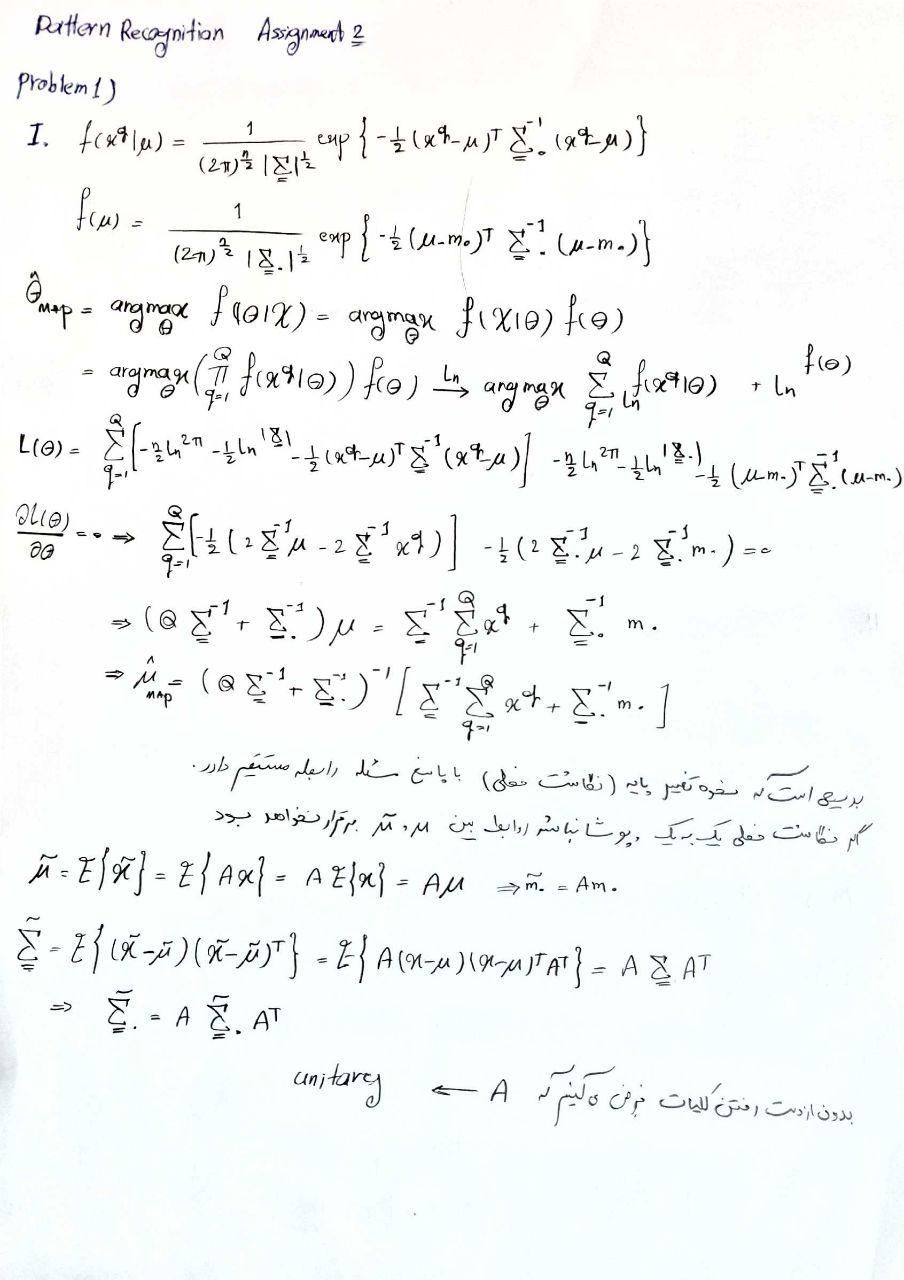 Pattern Recognition Assignment 2
Problem 1)
I. f(x^q|μ) = 1/((2π)^{n/2} |Σ|^{1/2}) exp{-½(x^q-μ)^T Σ.^{-1} (x^q-μ)}
f(μ) = 1/((2π)^{n/2} |Σ.|^{1/2}) exp{-½(μ-m.)^T Σ.^{-1} (μ-m.)}
θ̂_MAP = argmax_θ f(θ|X) = argmax_θ f(X|θ) f(θ)
= argmax_θ (∏_{q=1}^{Q} f(x^q|θ)) f(θ) →^{Ln} argmax_θ Σ_{q=1}^{Q} Ln f(x^q|θ) + Ln f(θ)
L(θ) = Σ_{q=1}^{Q} [-n/2 Ln 2π - ½ Ln |Σ| - ½(x^q-μ)^T Σ^{-1} (x^q-μ)] - n/2 Ln 2π - ½ Ln |Σ.| - ½ (μ-m.)^T Σ.^{-1} (μ-m.)
∂L(θ)/∂θ = 0 ⇒ Σ_{q=1}^{Q} [-½ (2 Σ^{-1} μ - 2 Σ^{-1} x^q)] - ½ (2 Σ.^{-1} μ - 2 Σ.^{-1} m.) = 0
⇒ (Q Σ^{-1} + Σ.^{-1}) μ = Σ^{-1} Σ_{q=1}^{Q} x^q + Σ.^{-1} m.
⇒ μ̂_MAP = (Q Σ^{-1} + Σ.^{-1})^{-1} [Σ^{-1} Σ_{q=1}^{Q} x^q + Σ.^{-1} m.]
بدیهی است که نحوه تغییر پایه (نگاشت خطی) با پاسخ مسئله رابطه مستقیم دارد.
اگر نگاشت خطی یک به یک و پوشا نباشد روابط بین μ و μ̃ برقرار نخواهد بود
μ̃ = E{x̃} = E{Ax} = A E{x} = Aμ ⇒ m̃. = Am.
Σ̃ = E{(x̃-μ̃)(x̃-μ̃)^T} = E{A(x-μ)(x-μ)^T A^T} = A Σ A^T
⇒ Σ̃. = A Σ̃. A^T
بدون از دست رفتن کلیات فرض می‌کنیم که A ← unitary